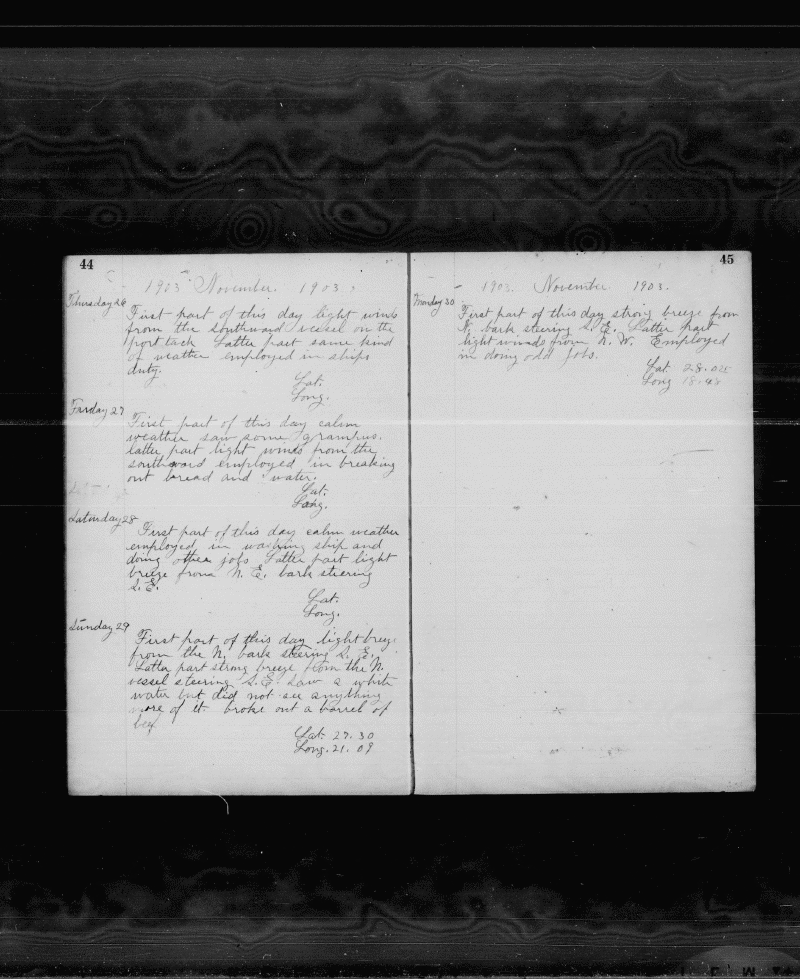 44
1903 November. 1903.
Thursday 26
First part of this day light winds
from the southward vessel on the
port tack Latter part same kind
of weather employed in ships
duty.
Lat.
Long.
Friday 27
First part of this day calm
weather saw some grampus.
latter part light winds from the
southward employed in breaking
out bread and water.
Lat.
Long.
Saturday 28
First part of this day calm weather
employed in washing ship and
doing other jobs Latter part light
breeze from N. E. bark steering
S. E.
Lat.
Long.
Sunday 29
First part of this day light breeze
from the N. bark steering S. E.
Latter part strong breeze from the N.
vessel steering S. E. Saw a white
water but did not see anything
more of it. broke out a barrel of
beef.
Lat. 27.30
Long. 21.09
45
1903. November 1903.
Monday 30
First part of this day strong breeze from
N. bark steering S. E. Latter part
light winds from N. W. Employed
in doing odd jobs.
Lat. 28.
Long 18.48